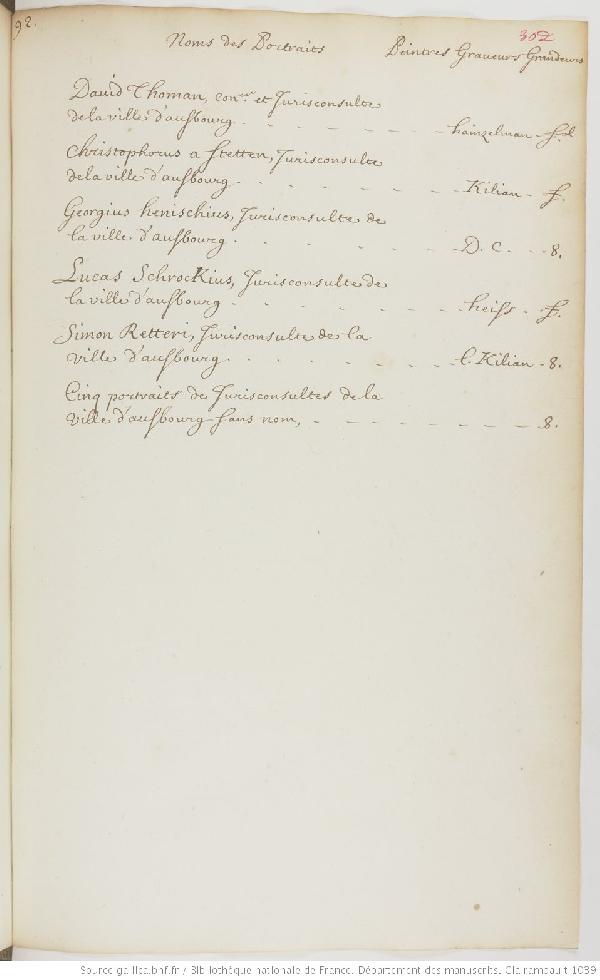 92.
302
Noms des Portraits Peintres Graveurs Grandeurs
David Thoman, con.er et Jurisconsulte
de la ville d'ausbourg . . . . . . hainzelman - fol
Christophorus a Stetten, Jurisconsulte
de la ville d'ausbourg . . . . . . Kilian - f.
Georgius henischius, Jurisconsulte de
la ville d'ausbourg . . . . . . D. C. . . 8.
Lucas Schrockius, Jurisconsulte de
la ville d'ausbourg . . . . . . heiss . f.
Simon Retteri, Jurisconsulte de la
ville d'ausbourg . . . . . . l. Kilian - 8.
Cinq portraits de Jurisconsultes de la
ville d'ausbourg sans nom, . . . . . . 8.
Source gallica.bnf.fr / Bibliothèque nationale de France. Département des manuscrits. Clairambault 1039